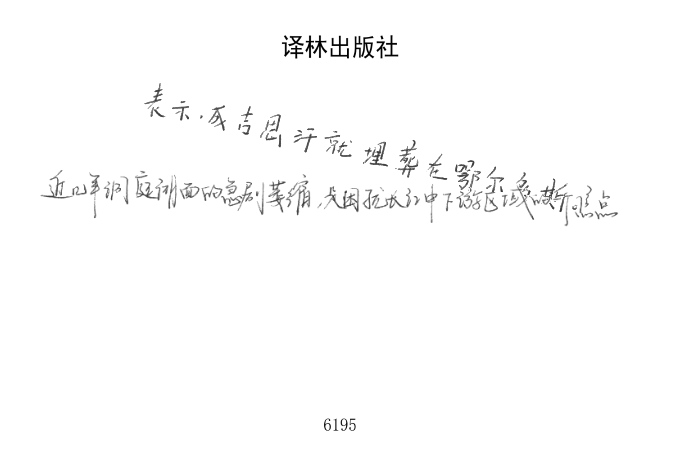 译林出版社
表示,成吉思汗就埋葬在鄂尔多斯。
近几年洞庭湖面的急剧萎缩,是困扰长江中下游区域的焦点
6195